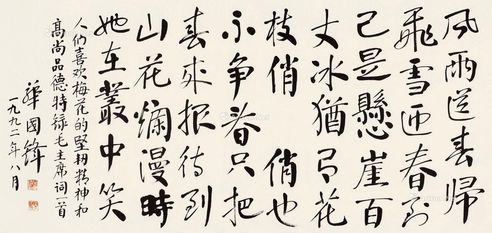 风雨送春归
飛雪迎春到
已是懸崖百
丈冰猶有花
枝俏 俏也
不争春只把
春来报待到
山花爛漫時
她在叢中笑
人们喜欢梅花的坚韧精神和
高尚品德特录毛主席词一首
華國鋒
一九九二年八月